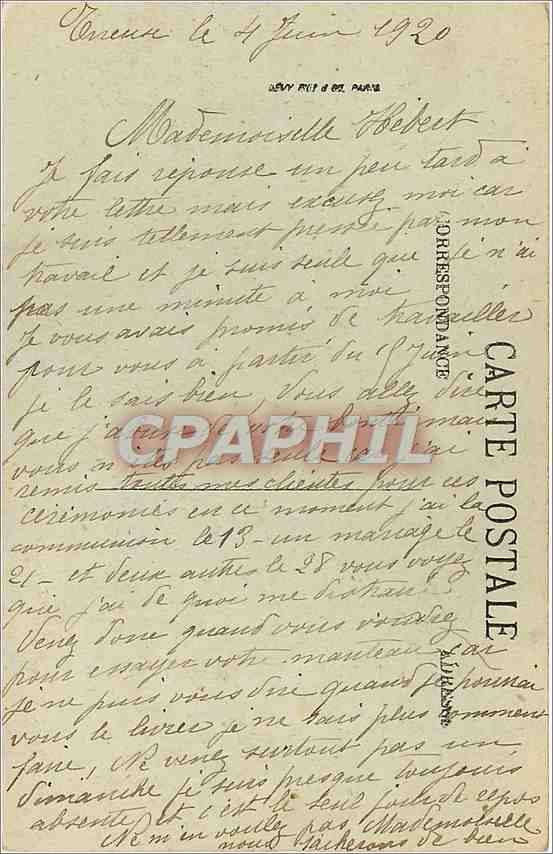 le 4 Juin 1920
LEVY FILS & Cie, PARIS
Mademoiselle Hébert
Je fais réponse un peu tard à
votre lettre mais excusez moi car
je suis tellement pressé par mon
travail et je suis seule que je n'ai
pas une minute à moi
Je vous avais promis de travailler
pour vous à partir du 15 Juin
je le sais bien, vous allez dire
que j'abuse de votre bonté mais
vous n'êtes pas seule car j'ai
remis toutes mes clientes pour ces
cérémonies en ce moment j'ai la
communion le 13 - un mariage le
21 - et deux autres le 28 vous voyez
que j'ai de quoi me distraire.
Venez donc quand vous voudrez
pour essayer votre manteau car
je ne puis vous dire quand je pourrai
vous le livrer je ne sais plus comment
faire, Ne venez surtout pas un
dimanche je suis presque toujours
absente et c'est le seul jour de repos
Ne m'en voulez pas Mademoiselle
nous tâcherons de bien
CORRESPONDANCE
CARTE POSTALE
ADRESSE
CPAPHIL